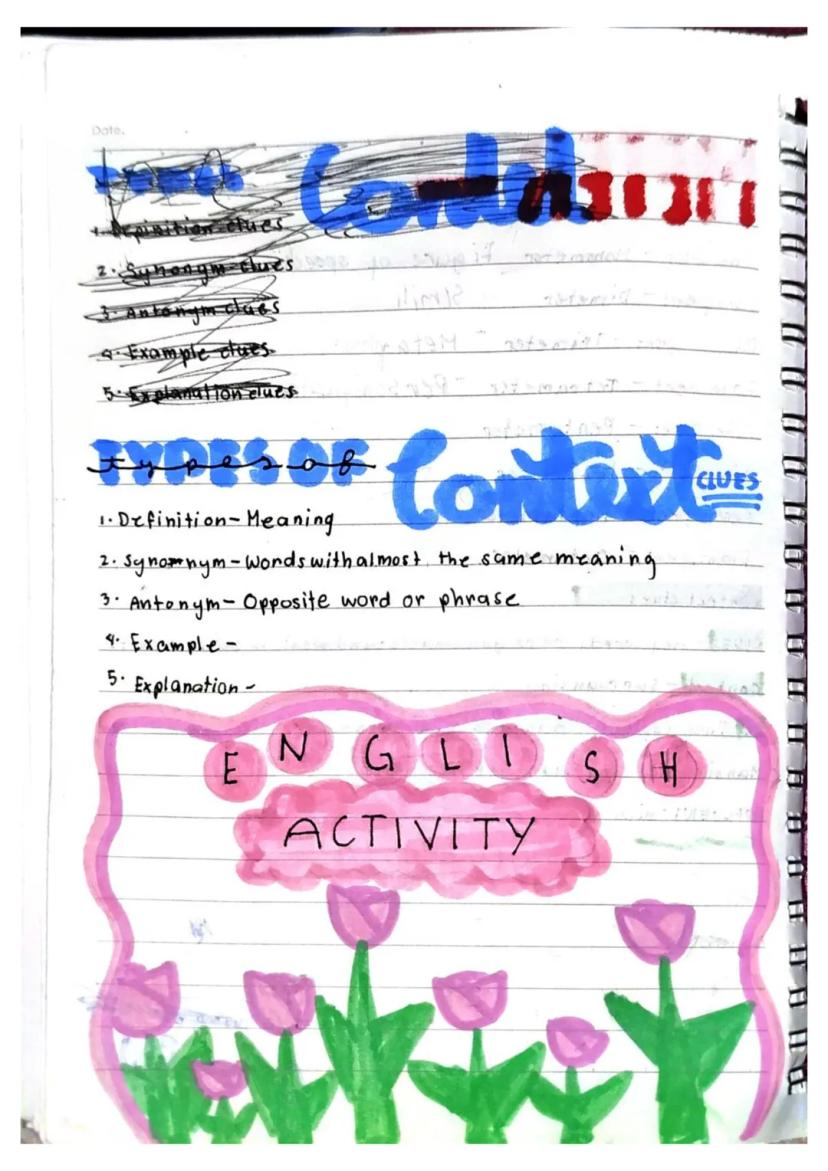 Date.
Types
1. Definition clues
2. Synonym clues
3. Antonym clues
4. Example clues
5. Explanation clues
TYPES OF Context CLUES
types of
1. Definition - Meaning
2. Synonym - Words with almost the same meaning
3. Antonym - Opposite word or phrase
4. Example -
5. Explanation -
ENGLISH
ACTIVITY